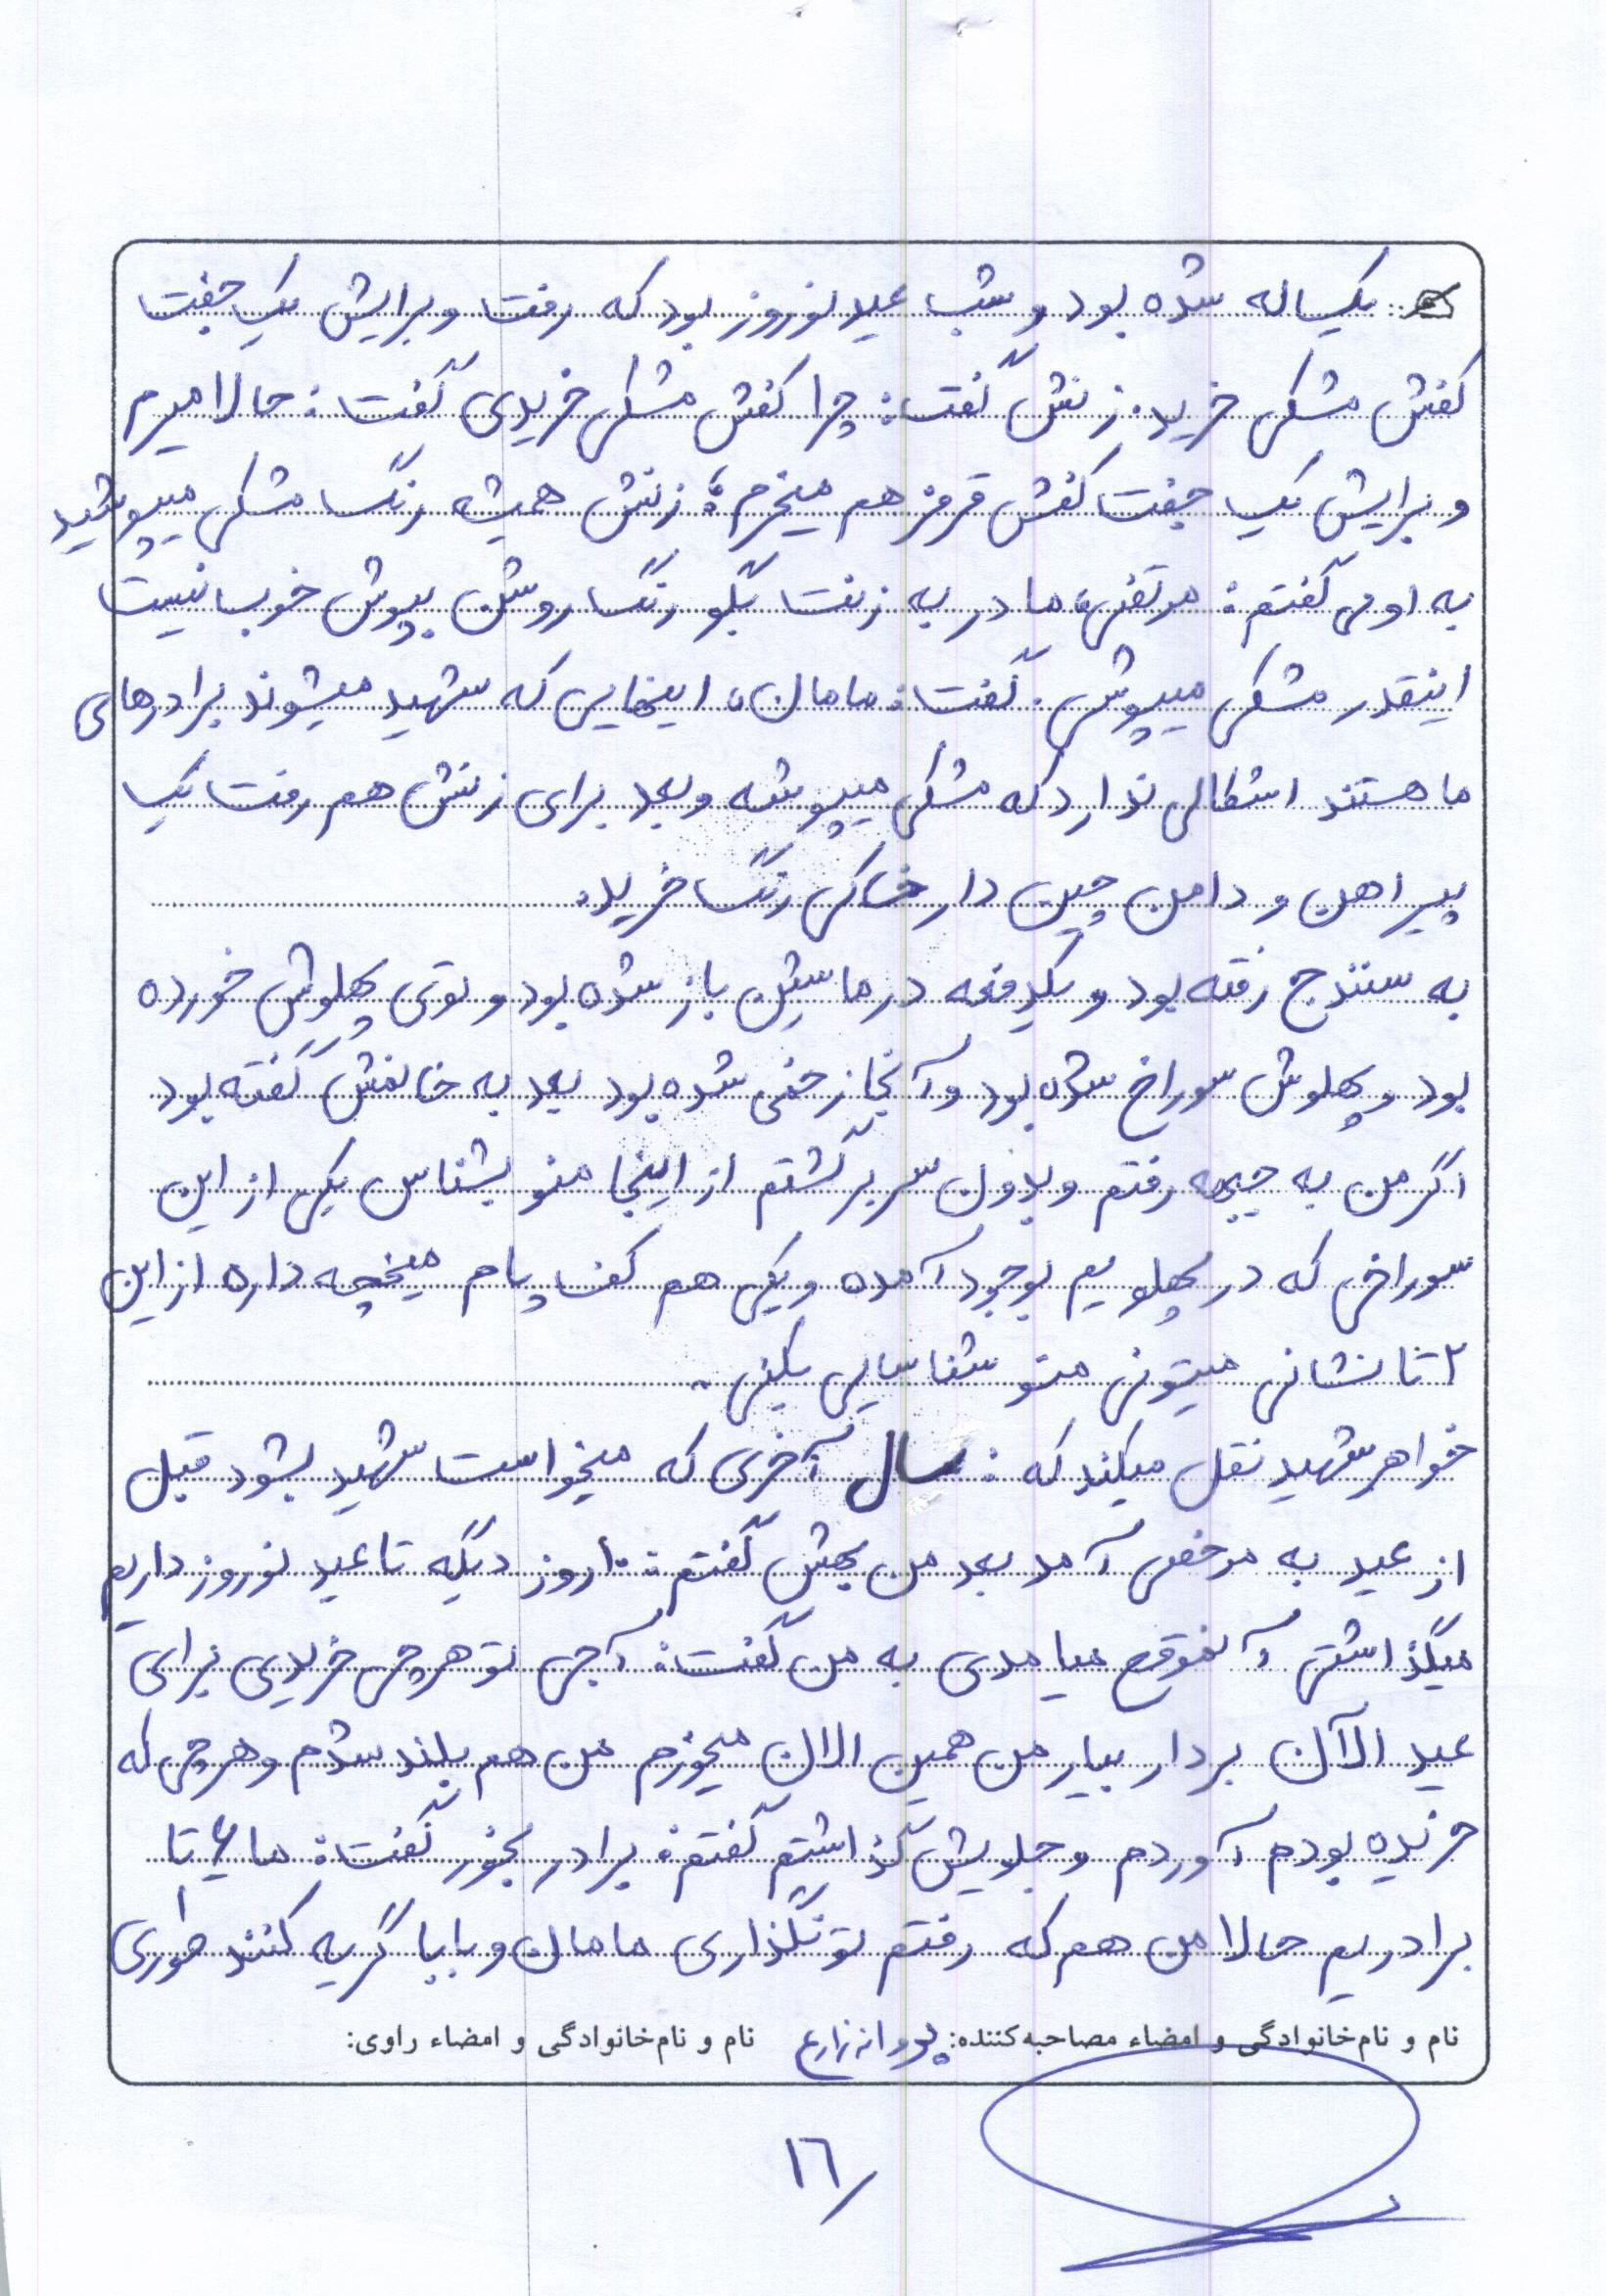 یکساله شده بود و شب عید نوروز بود که رفت و برایش یک جفت
کفش مشکی خرید. زنش گفت: چرا کفش مشکی خریدی گفت: حالا میرم
و برایش یک جفت کفش قرمز هم میخرم؛ زنش همیشه رنگ مشکی میپوشید
به او می گفتم: مرتضی، مادر به زنت بگو رنگ روشن بپوش خوب نیست
اینقدر مشکی میپوشی. گفت: مامان، اینهایی که شهید میشوند برادرهای
ما هستند اشکالی ندارد که مشکی میپوشه و بعد برای زنش هم رفت یک
پیراهن و دامن چین دار خاکی رنگ خرید.
به سنندج رفته بود و یکدفعه در ماشین باز شده بود و توی پهلوش خورده
بود و پهلوش سوراخ شده بود و آنجا زخمی شده بود بعد به خانمش گفته بود
اگر من به جبهه رفتم و بدون سر برگشتم از اینجا منو بشناس یکی از این
سوراخی که در پهلویم بوجود آمده و یکی هم کف پام میخچه داره از این
۲ تا نشانی میتونی منو شناسایی بکنی.
خواهر شهید نقل میکند که: سال آخری که میخواست شهید بشود قبل
از عید به مرخصی آمد بعد من بهش گفتم: ۱۰ روز دیگه تا عید نوروز داریم
میگذاشتی آنموقع میامدی به من گفت: آجی تو هر چی خریدی برای
عید الآن بردار بیار من همین الان میخورم من هم بلند شدم و هر چی که
خریده بودم آوردم و جلویش گذاشتم گفتم: برادر بخور گفت: ما ۶ تا
برادریم حالا من هم که رفتم تو نگذاری مامان و بابا گریه کنند طوری
نام و نام‌خانوادگی و امضاء مصاحبه‌کننده: پروانه زارع نام و نام‌خانوادگی و امضاء راوی:
۱۶